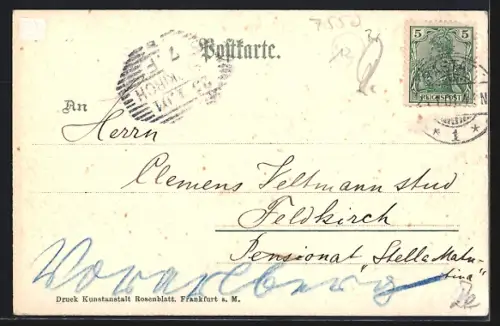 7550
Postkarte.
5
REICHSPOST
KIRCH
An
Herrn
* 1 *
Clemens Veltmann stud
Feldkirch
Pensionat "Stella Matu-
tina"
Vorarlberg
Druck Kunstanstalt Rosenblatt, Frankfurt a. M.